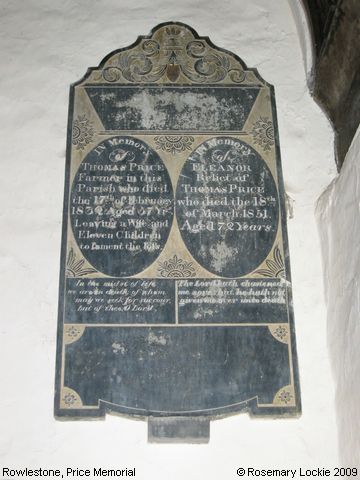 In Memory
of
THOMAS PRICE
Farmer in this
Parish who died
the 17th of February
1832 Aged 57 Yrs
Leaving a Wife and
Eleven Children
to lament the loss.
In the midst of life
we are in death of whom
may we seek for succour,
but of thee, O Lord.
In Memory
of
ELEANOR
Relict of
THOMAS PRICE
who died the 18th
of March 1851.
Aged 72 Years.
The Lord hath chastened
me sore: but he hath not
given me over unto death
Rowlestone, Price Memorial
© Rosemary Lockie 2009